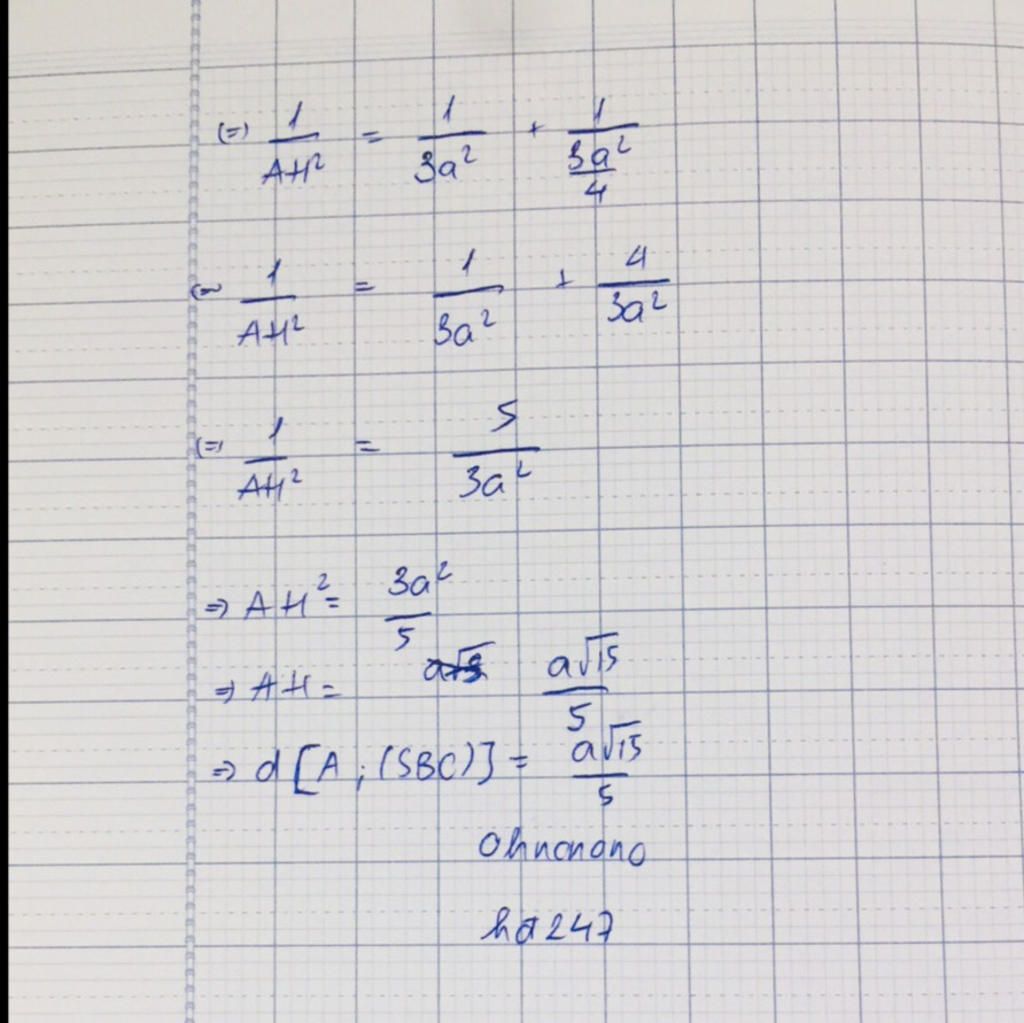 (=) 1/AH² = 1/3a² + 1/(3a²/4)
(= 1/AH² = 1/3a² + 4/3a²
(=) 1/AH² = 5/3a²
=) AH² = 3a²/5
=) AH = a√15/5
=) d[A ; (SBC)] = a√15/5
Ohnonono